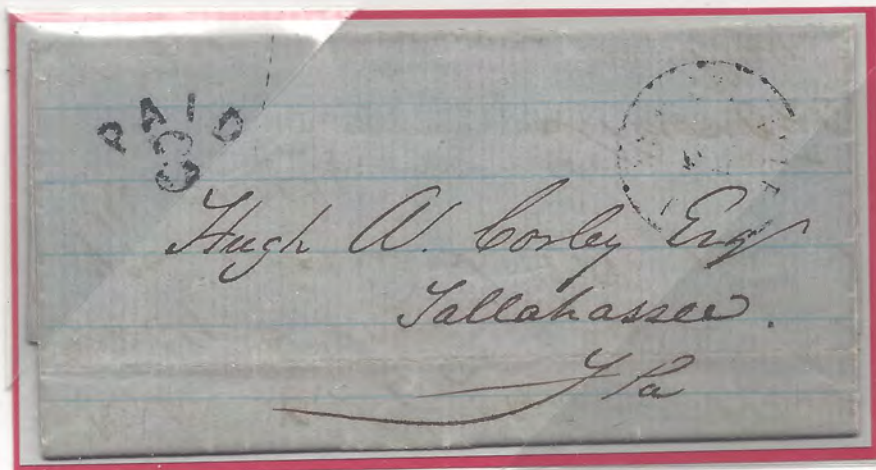 PAID
3
Hugh W. Corley Esqr
Tallahassee.
Fla